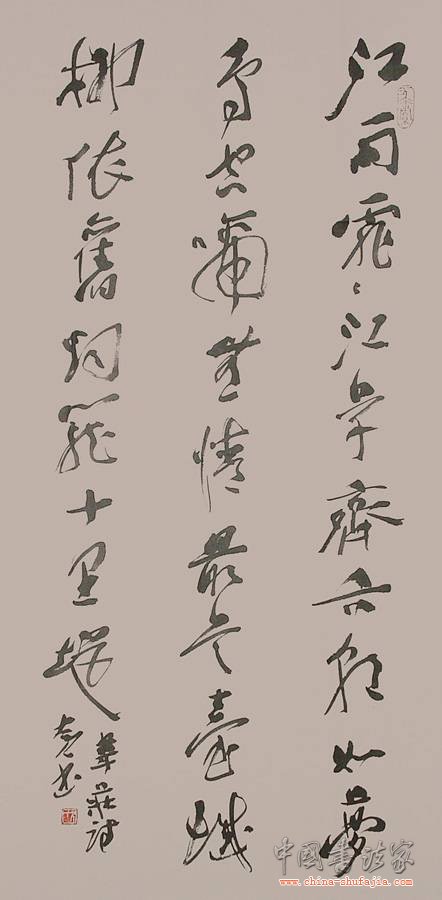 江雨霏〻江草齊六朝如夢
鳥空啼無情最是臺城
柳依舊烟籠十里堤
韋莊詩
書
中國書法家
www.china-shufajia.com